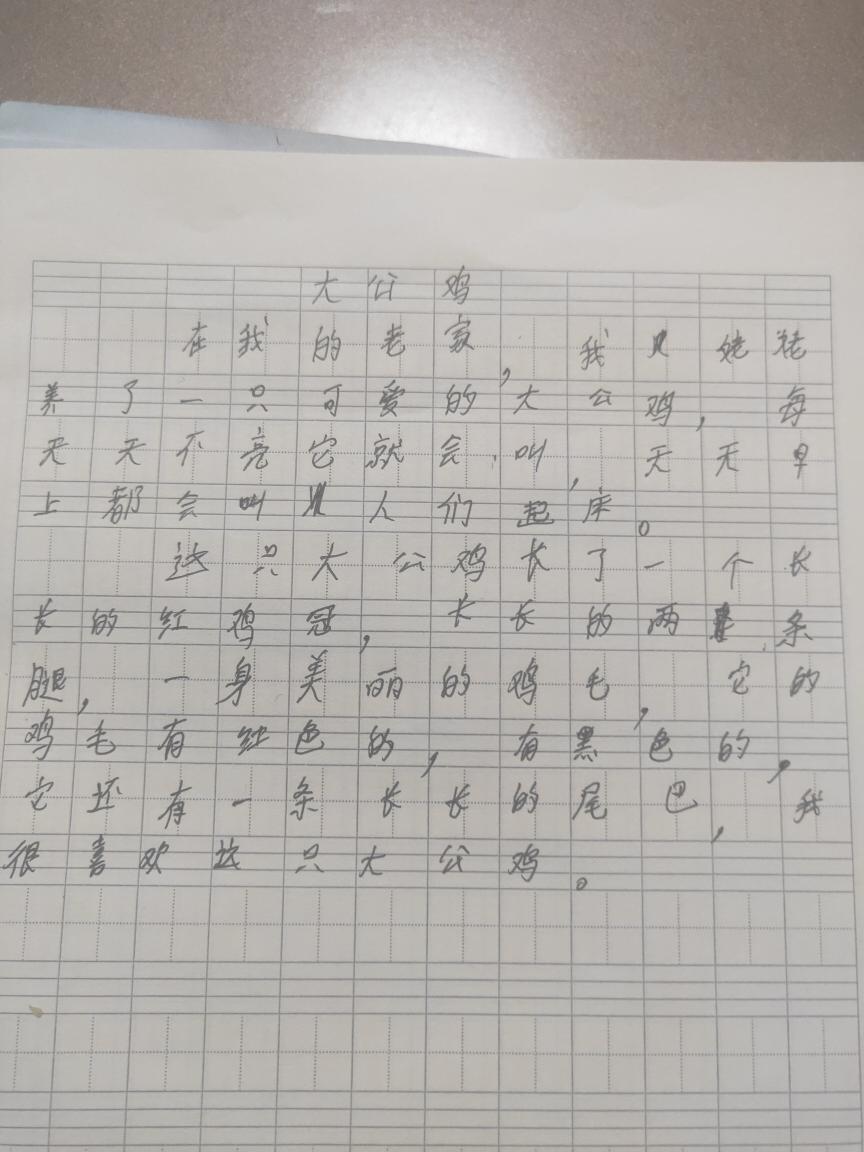 大公鸡
在我的老家，我姥姥
养了一只可爱的大公鸡，每
天天不亮它就会叫，天天早
上都会叫人们起床。
这只大公鸡长了一个长
长的红鸡冠，长长的两条
腿，一身美丽的鸡毛，它的
鸡毛有红色的，有黑色的，
它还有一条长长的尾巴，我
很喜欢这只大公鸡。